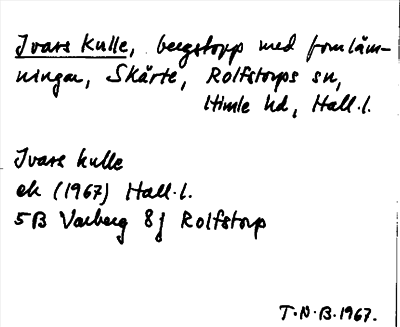 Ivars Kulle, bergstopp med fornläm-
ningar, Skärte, Rolfstorps sn,
Himle hd, Hall.l.
Ivars kulle
ek (1967) Hall.l.
5B Varberg 8j Rolfstorp
T.N.B. 1967.